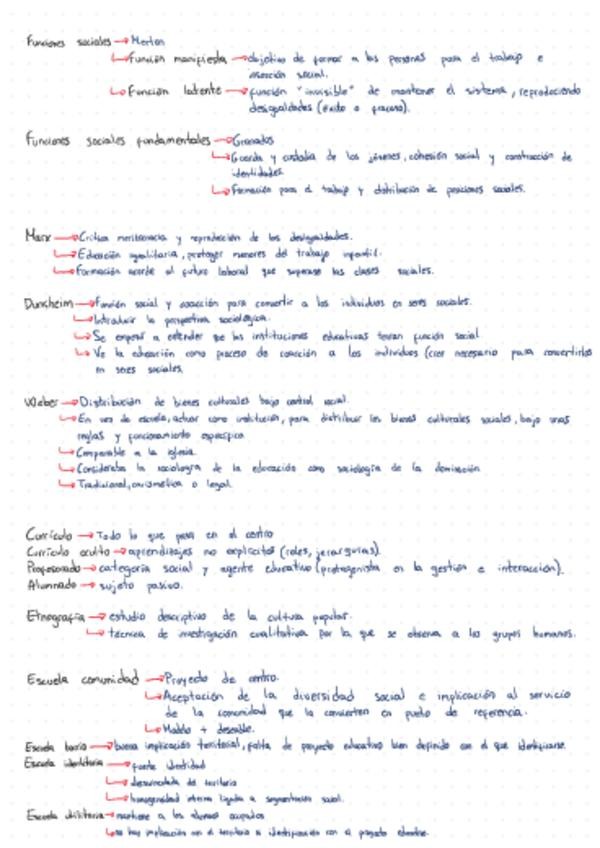 Funciones sociales → Merton
↳ Función manifiesta → objetivo de formar a las personas para el trabajo e
inserción social.
↳ Función latente → función "invisible" de mantener el sistema, reproduciendo
desigualdades (éxito o fracaso).
Funciones sociales fundamentales → Granados
↳ Guarda y custodia de los jóvenes, cohesión social y construcción de
identidades.
↳ Formación para el trabajo y distribución de posiciones sociales.
Marx → Critica meritocracia y reproducción de las desigualdades.
↳ Educación igualitaria, proteger menores del trabajo infantil.
↳ Formación acorde al futuro laboral que superase las clases sociales.
Durkheim → Función social y coacción para convertir a los individuos en seres sociales.
↳ Introducir la perspectiva sociológica.
↳ Se empezó a entender que las instituciones educativas tenían función social.
↳ Ve la educación como proceso de coacción a los individuos (cree necesario para convertirlos
en seres sociales.
Weber → Distribución de bienes culturales bajo control social.
↳ En vez de escuela, actuar como institución, para distribuir los bienes culturales sociales, bajo unas
reglas y funcionamiento específico.
↳ Comparable a la iglesia.
↳ Consideraba la sociología de la educación como sociología de la dominación.
↳ Tradicional, carismática o legal.
Currículo → Todo lo que pasa en el centro
Currículo oculto → aprendizajes no explícitos (roles, jerarquías).
Profesorado → categoría social y agente educativo (protagonista en la gestión e interacción).
Alumnado → sujeto pasivo.
Etnografía → estudio descriptivo de la cultura popular.
↳ técnica de investigación cualitativa por la que se observa a los grupos humanos.
Escuela comunidad → Proyecto de centro.
↳ Aceptación de la diversidad social e implicación al servicio
de la comunidad que la convierten en punto de referencia.
↳ Modelo + deseable.
Escuela barrio → buena implicación territorial, falta de proyecto educativo bien definido con el que identificarse.
Escuela identitaria → fuerte identidad
↳ desvinculada de territorio
↳ homogeneidad interna ligada a segmentación social.
Escuela utilitaria → mantiene a los alumnos ocupados
↳ no hay implicación con el territorio o identificación con el proyecto educativo.